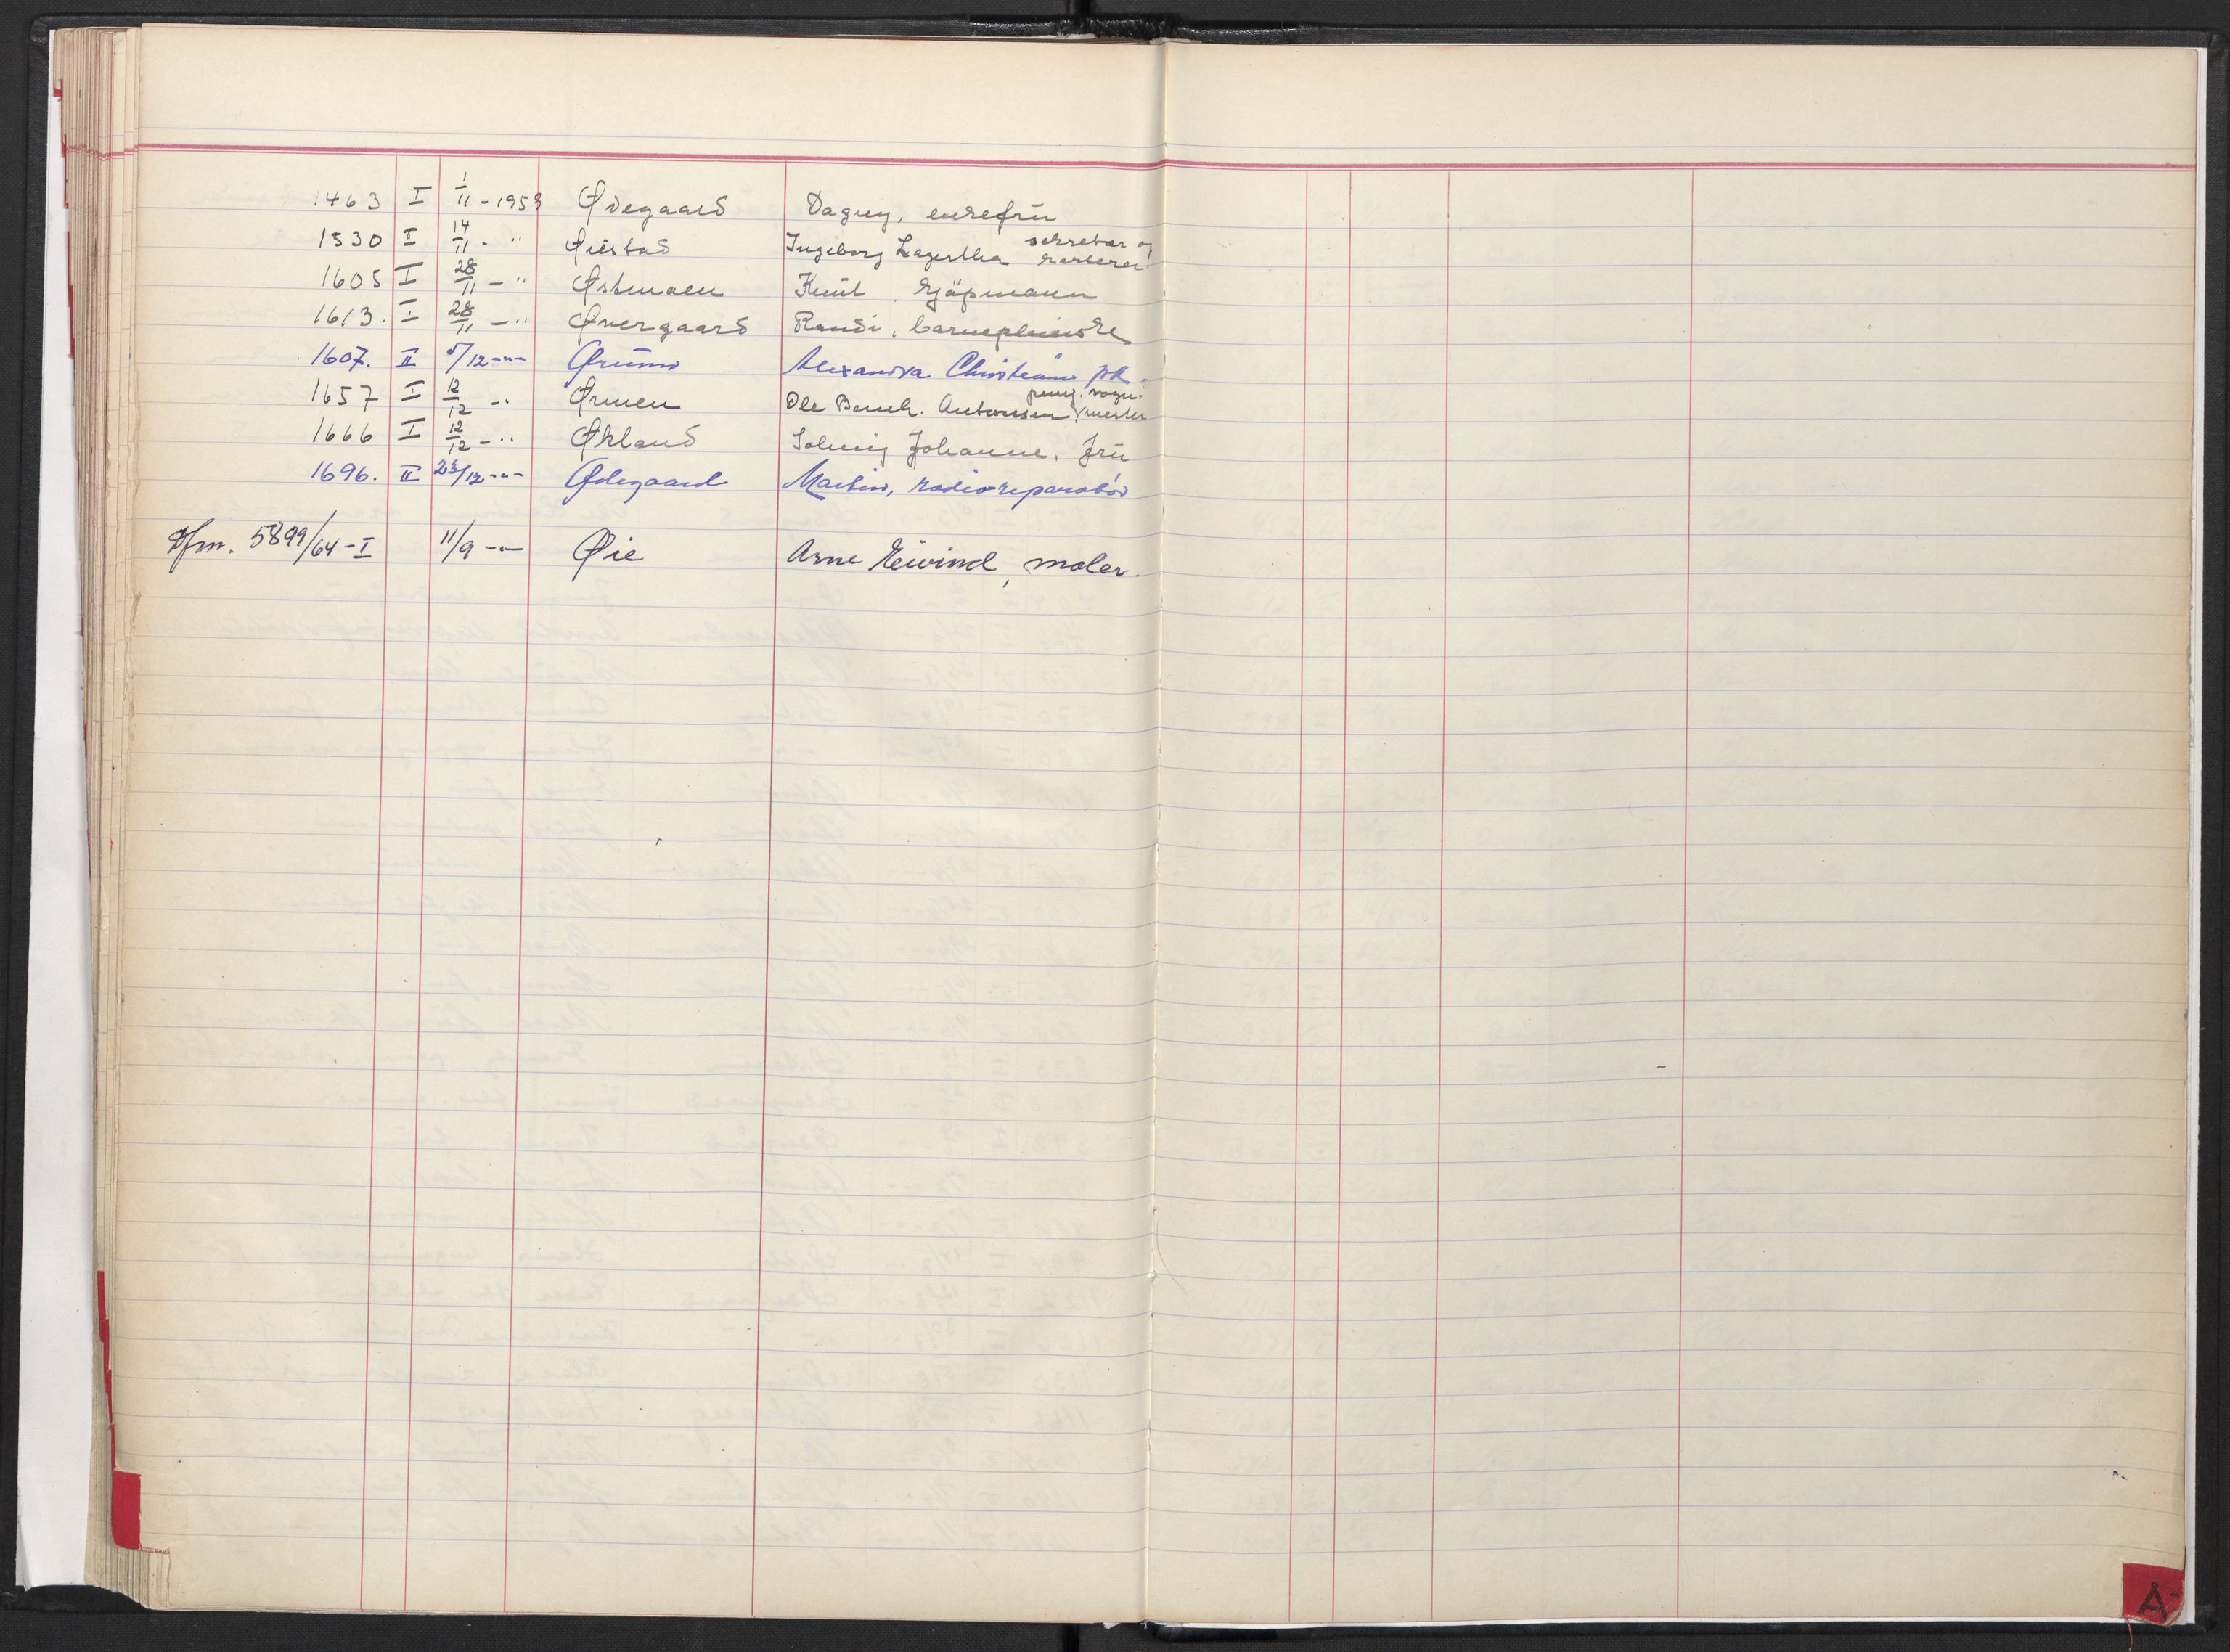 1463 I 1/11 - 1953 Ødegaard Dagny, enkefrü
1530 I 14/11 - " Øiestad Ingeborg Lagertha sekretær og
1605 I 28/11 - " Østmoen Knüt kjøpmann
1613. I 28/11 - " Øvergaard Randi, barnepleierske
1607. II 5/12 - " - Alexandra Christiane
1657 I 12/12 - " Ørmen Ole Bernh. Antonsen pens. vogn-
mester
1666 I 12/12 - " Økland Solveig Johanne, Frü
1696. II 23/12 - " - Ødegaard Martin, radioreparatør
Jfm. 5899/64 - I 11/9 - " - Øie Arne Eivind, maler.
Å